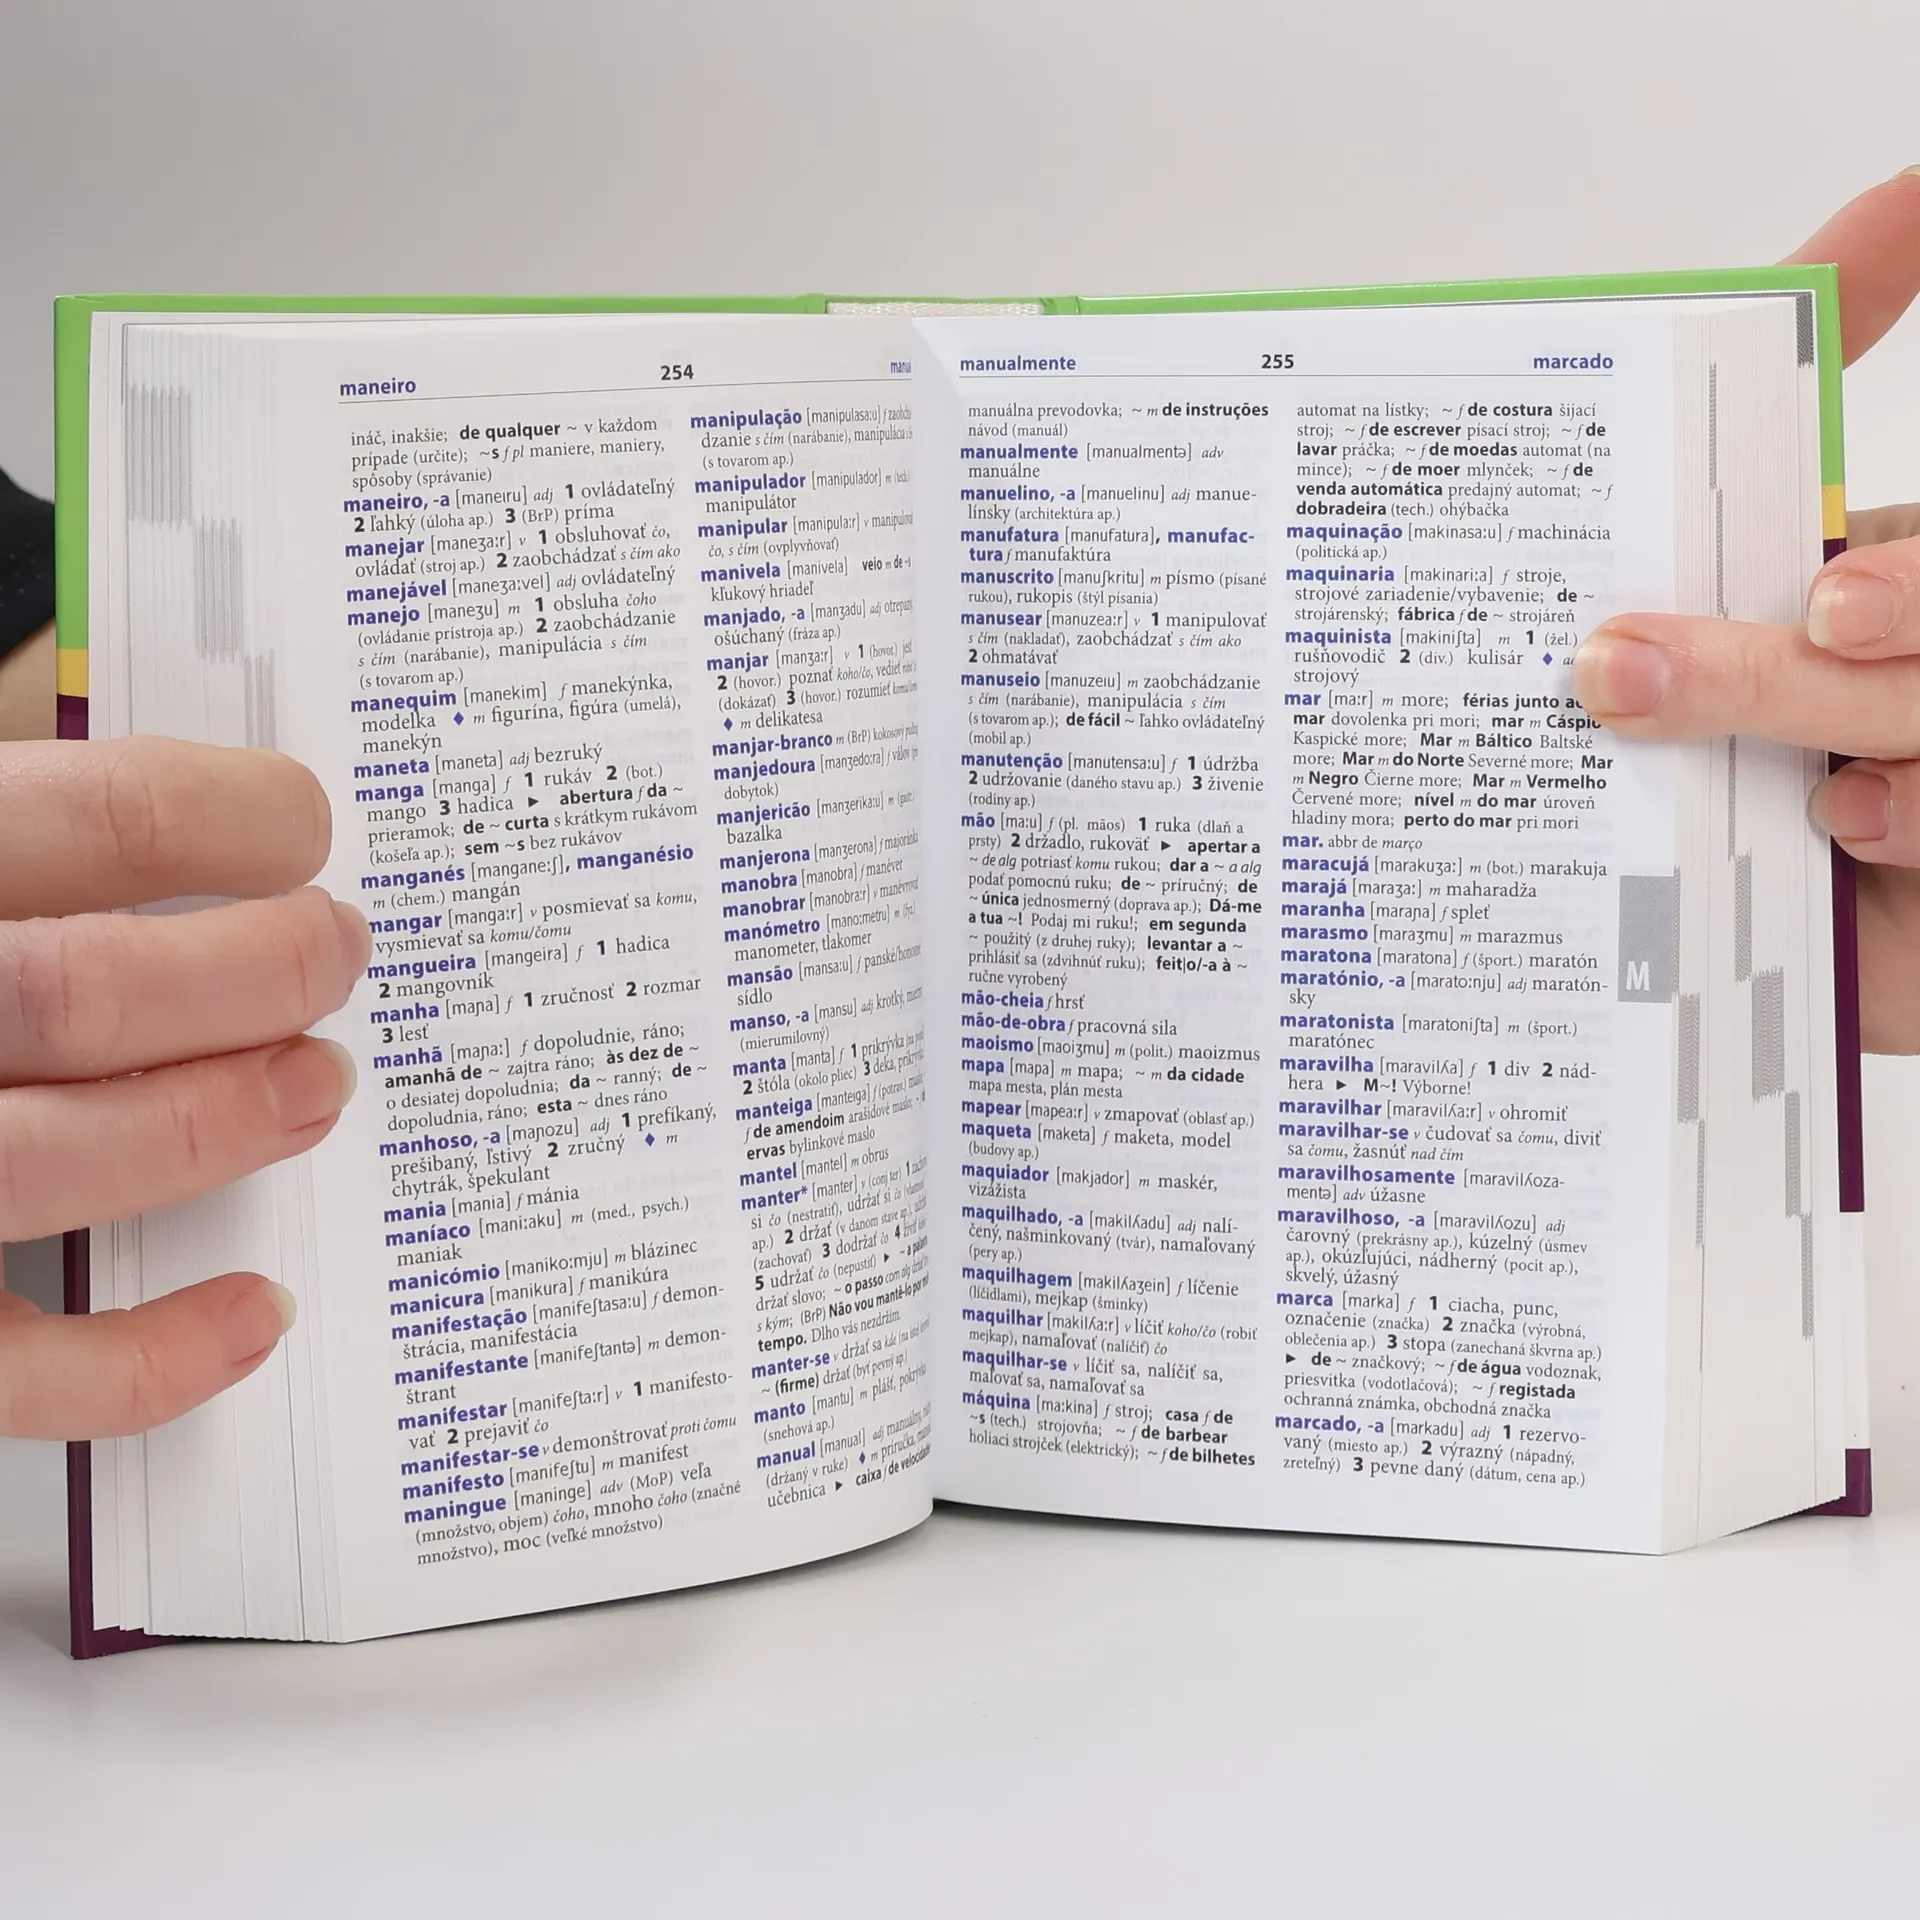 maneiro 254
ináč, inakšie; de qualquer ~ v každom
prípade (určite); ~s f pl maniere, maniery,
spôsoby (správanie)
maneiro, -a [maneıru] adj 1 ovládateľný
2 ľahký (úloha ap.) 3 (BrP) príma
manejar [maneʒa:r] v 1 obsluhovať čo,
ovládať (stroj ap.) 2 zaobchádzať s čím ako
manejável [maneʒa:vel] adj ovládateľný
manejo [maneʒu] m 1 obsluha čoho
(ovládanie prístroja ap.) 2 zaobchádzanie
s čím (narábanie), manipulácia s čím
(s tovarom ap.)
manequim [manekim] f manekýnka,
modelka ♦ m figurína, figúra (umelá),
manekýn
maneta [maneta] adj bezruký
manga [manga] f 1 rukáv 2 (bot.)
mango 3 hadica ► abertura f da ~
prieramok; de ~ curta s krátkym rukávom
(košeľa ap.); sem ~s bez rukávov
manganés [mangane:ʃ], manganésio
m (chem.) mangán
mangar [manga:r] v posmievať sa komu,
vysmievať sa komu/čomu
mangueira [mangeira] f 1 hadica
2 mangovník
manha [maɲa] f 1 zručnosť 2 rozmar
3 lesť
manhã [maɲa:] f dopoludnie, ráno;
amanhã de ~ zajtra ráno; às dez de ~
o desiatej dopoludnia; da ~ ranný; de ~
dopoludnia, ráno; esta ~ dnes ráno
manhoso, -a [maɲozu] adj 1 prefíkaný,
prešibaný, ľstivý 2 zručný ♦ m
chytrák, špekulant
mania [mania] f mánia
maníaco [mani:aku] m (med., psych.)
maniak
manicómio [maniko:mju] m blázinec
manicura [manikura] f manikúra
manifestação [manifeʃtasa:u] f demon-
štrácia, manifestácia
manifestante [manifeʃtantə] m demon-
štrant
manifestar [manifeʃta:r] v 1 manifesto-
vať 2 prejaviť čo
manifestar-se v demonštrovať proti čomu
manifesto [manifeʃtu] m manifest
maningue [maninge] adv (MoP) veľa
(množstvo, objem) čoho, mnoho čoho (značné
množstvo), moc (veľké množstvo)
manipulação [manipulasa:u] f
dzanie s čím (narábanie), manipulácia
(s tovarom ap.)
manipulador [manipulador] m (tech.)
manipulátor
manipular [manipula:r] v
čo, s čím (ovplyvňovať)
manivela [manivela] veio m de ~s
kľukový hriadeľ
manjado, -a [manʒadu] adj
ošúchaný (fráza ap.)
manjar [manʒa:r] v 1 (hovor.) jesť
2 (hovor.) poznať koho/čo, vedieť
(dokázať) 3 (hovor.) rozumieť
♦ m delikatesa
manjar-branco m (BrP) kokosový
manjedoura [manʒedo:ra] f válov
dobytok)
manjericão [manʒerika:u] m
bazalka
manjerona [manʒerona] f
manobra [manobra] f manéver
manobrar [manobra:r] v
manómetro [mano:metru] m
manometer, tlakomer
mansão [mansa:u] f
sídlo
manso, -a [mansu] adj krotký,
(mierumilovný)
manta [manta] f 1 prikrývka
2 štóla (okolo pliec) 3 deka,
manteiga [manteıga] f (potrav.)
f de amendoim arašidové maslo;
ervas bylinkové maslo
mantel [mantel] m obrus
manter* [manter] v (conj ter) 1
si čo (nestratiť), udržať si čo
ap.) 2 držať (v danom stave ap.),
(zachovať) 3 dodržať čo 4
5 udržať čo (nepustiť) ►
držať slovo; ~ o passo com alg držať
s kým; (BrP) Não vou mantê-lo por
tempo. Dlho vás nezdržím.
manter-se v držať sa kde
~ (firme) držať (byť pevný ap.)
manto [mantu] m plášť,
(snehová ap.)
manual [manual] adj manuálny,
(držaný v ruke) ♦ m príručka,
učebnica ► caixa f de velocidades
manualmente 255 marcado
manuálna prevodovka; ~ m de instruções
návod (manuál)
manualmente [manualmentə] adv
manuálne
manuelino, -a [manuelinu] adj manue-
línsky (architektúra ap.)
manufatura [manufatura], manufac-
tura f manufaktúra
manuscrito [manuʃkritu] m písmo (písané
rukou), rukopis (štýl písania)
manusear [manuzea:r] v 1 manipulovať
s čím (nakladať), zaobchádzať s čím ako
2 ohmatávať
manuseio [manuzeıu] m zaobchádzanie
s čím (narábanie), manipulácia s čím
(s tovarom ap.); de fácil ~ ľahko ovládateľný
(mobil ap.)
manutenção [manutensa:u] f 1 údržba
2 udržovanie (daného stavu ap.) 3 živenie
(rodiny ap.)
mão [ma:u] f (pl. mãos) 1 ruka (dlaň a
prsty) 2 držadlo, rukoväť ► apertar a
~ de alg potriasť komu rukou; dar a ~ a alg
podať pomocnú ruku; de ~ príručný; de
~ única jednosmerný (doprava ap.); Dá-me
a tua ~! Podaj mi ruku!; em segunda
~ použitý (z druhej ruky); levantar a ~
prihlásiť sa (zdvihnúť ruku); feit|o/-a à ~
ručne vyrobený
mão-cheia f hrsť
mão-de-obra f pracovná sila
maoismo [maoiʒmu] m (polit.) maoizmus
mapa [mapa] m mapa; ~ m da cidade
mapa mesta, plán mesta
mapear [mapea:r] v zmapovať (oblasť ap.)
maqueta [maketa] f maketa, model
(budovy ap.)
maquiador [makjador] m maskér,
vizážista
maquilhado, -a [makilʎadu] adj nalí-
čený, našminkovaný (tvár), namaľovaný
(pery ap.)
maquilhagem [makilʎaʒein] f líčenie
(líčidlami), mejkap (šminky)
maquilhar [makilʎa:r] v líčiť koho/čo (robiť
mejkap), namaľovať (nalíčiť) čo
maquilhar-se v líčiť sa, nalíčiť sa,
maľovať sa, namaľovať sa
máquina [ma:kina] f stroj; casa f de
~s (tech.) strojovňa; ~ f de barbear
holiaci strojček (elektrický); ~ f de bilhetes
automat na lístky; ~ f de costura šijací
stroj; ~ f de escrever písací stroj; ~ f de
lavar práčka; ~ f de moedas automat (na
mince); ~ f de moer mlynček; ~ f de
venda automática predajný automat; ~ f
dobradeira (tech.) ohýbačka
maquinação [makinasa:u] f machinácia
(politická ap.)
maquinaria [makinari:a] f stroje,
strojové zariadenie/vybavenie; de ~
strojárenský; fábrica f de ~ strojáreň
maquinista [makiniʃta] m 1 (žel.)
rušňovodič 2 (div.) kulisár ♦
strojový
mar [ma:r] m more; férias junto
mar dovolenka pri mori; mar m Cáspio
Kaspické more; Mar m Báltico Baltské
more; Mar m do Norte Severné more; Mar
m Negro Čierne more; Mar m Vermelho
Červené more; nível m do mar úroveň
hladiny mora; perto do mar pri mori
mar. abbr de março
maracujá [marakuʒa:] m (bot.) marakuja
marajá [maraʒa:] m maharadža
maranha [maraɲa] f spleť
marasmo [maraʒmu] m marazmus
maratona [maratona] f (šport.) maratón
maratónio, -a [marato:nju] adj maratón-
sky
maratonista [maratoniʃta] m (šport.)
maratónec
maravilha [maravilʎa] f 1 div 2 nád-
hera ► M~! Výborne!
maravilhar [maravilʎa:r] v ohromiť
maravilhar-se v čudovať sa čomu, diviť
sa čomu, žasnúť nad čím
maravilhosamente [maravilʎoza-
mentə] adv úžasne
maravilhoso, -a [maravilʎozu] adj
čarovný (prekrásny ap.), kúzelný (úsmev
ap.), okúzľujúci, nádherný (pocit ap.),
skvelý, úžasný
marca [marka] f 1 ciacha, punc,
označenie (značka) 2 značka (výrobná,
oblečenia ap.) 3 stopa (zanechaná škvrna ap.)
► de ~ značkový; ~ f de água vodoznak,
priesvitka (vodotlačová); ~ f registada
ochranná známka, obchodná značka
marcado, -a [markadu] adj 1 rezervo-
vaný (miesto ap.) 2 výrazný (nápadný,
zreteľný) 3 pevne daný (dátum, cena ap.)
M